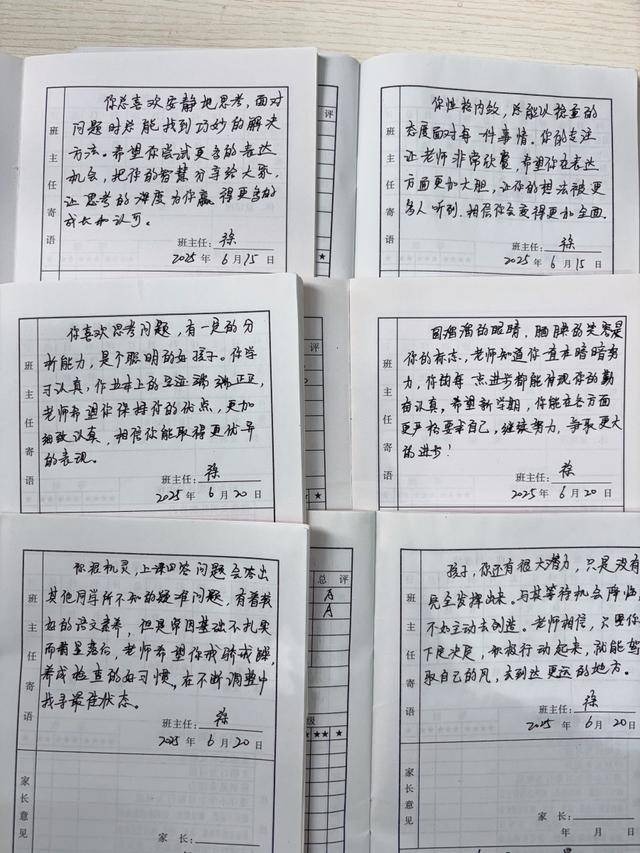 班主任寄语
你总喜欢安静地思考，面对
问题时总能找到巧妙的解决
方法。希望你尝试更多的表达
机会，把你的智慧分享给大家，
让思考的深度为你赢得更多的
成长和认可。
班主任：徐
2025年6月15日
总评
班主任寄语
你性格内敛，总能以稳重的
态度面对每一件事情，你的专注
让老师非常欣赏，希望你在表达
方面更加大胆，让你的想法被更
多人听到，相信你会变得更加全面。
班主任：徐
2025年6月15日
班主任寄语
你喜欢思考问题，有一定的分
析能力，是个聪明的好孩子。你学
习认真，作业本上的字迹端端正正，
老师希望你保持你的优点，更加
细致认真，相信你能取得更优异
的表现。
班主任：徐
2025年6月20日
总评
班主任寄语
圆溜溜的眼睛，腼腆的笑容是
你的标志，老师知道你一直在暗暗努
力，你的每一点进步都能体现你的勤
奋认真，希望新学期，你能在各方面
更严格要求自己，继续努力，争取更大
的进步！
班主任：徐
2025年6月20日
班主任寄语
你很机灵，上课回答问题会答出
其他同学所不知的疑难问题，有着较
好的语文素养，但是常因基础不扎实
而前呈落后，老师希望你戒骄戒躁，
养成检查的好习惯，在不断调整中
找寻最佳状态。
班主任：徐
2025年6月20日
家长意见
家长：
年 月 日
总评
A
A
级
班主任寄语
孩子，你还有很大潜力，只是没有
完全发挥出来。与其等待机会降临，
不如主动去创造。老师相信，只要你
下定决定，积极行动起来，就能驾
驭自己的风，去到达更远的地方。
班主任：徐
2025年6月20日
家长意见
家长：
年 月 日